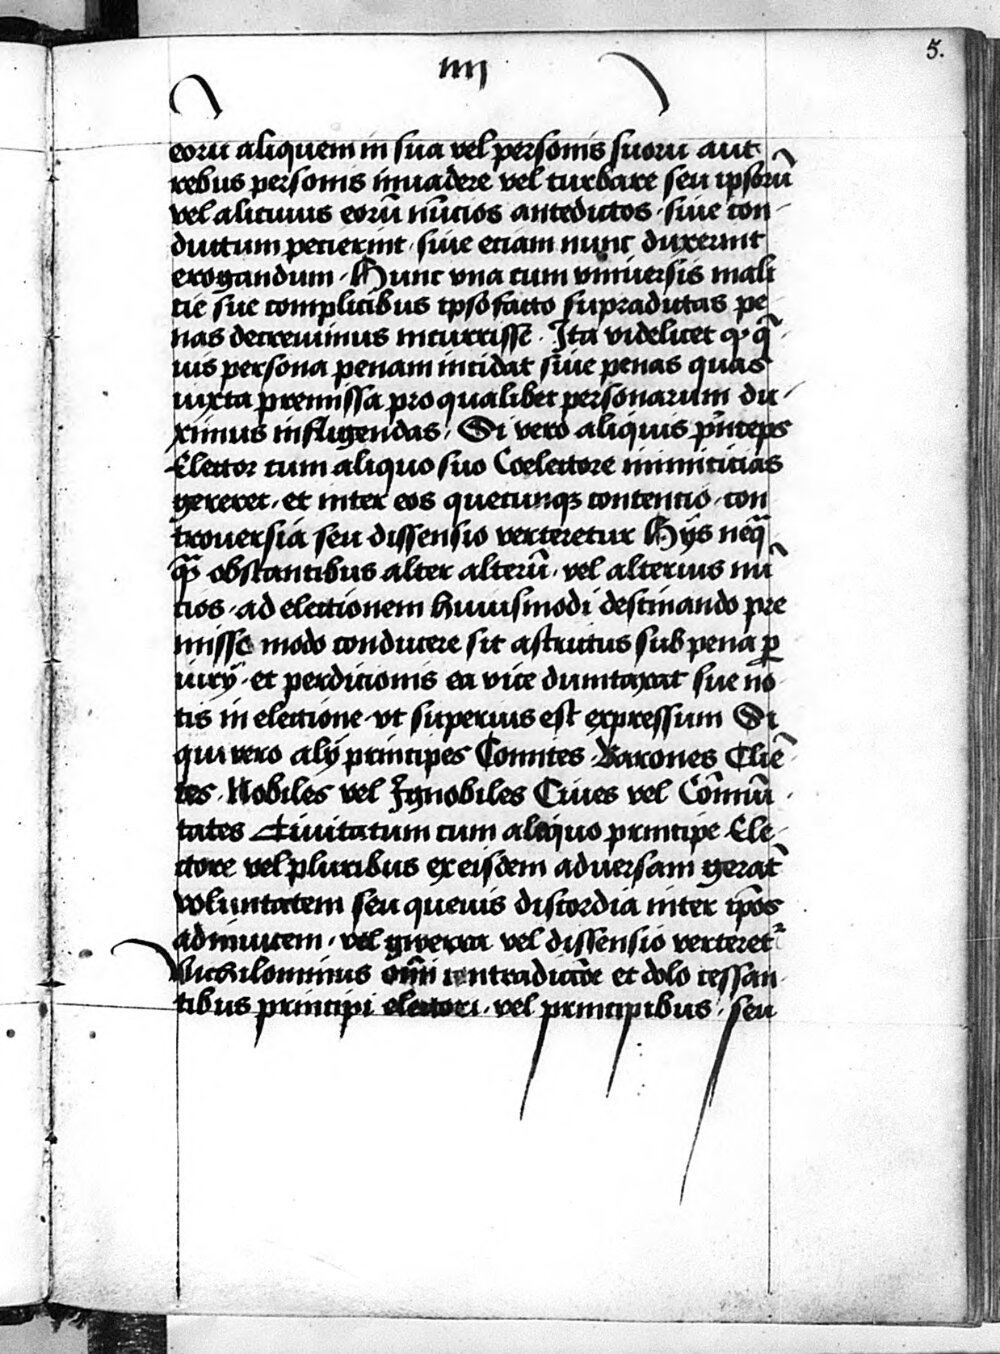 5.
iiii
eoru aliquem in sua vel personis suoru aut
rebus personis inuadere vel turbare seu ipsorū
vel alicuius eorū nūcios antedictos · siue con-
ductum pecierint · siue eciam nunc duxerint
erogandum · Hunc vna cum vniuersis mali
cie sue complicibus ipso facto supradictas pe
nas decreuimus incurrisse · Ita videlicet qꝫ q̄-
uis persona penam incidat siue penas quas
iuxta premissa pro qualibet personarum du-
ximus infligendas · Si vero aliquis pͥnceps
Elector cum aliquo suo Coelectore inimicicias
gereret · et inter eos quecunqꝫ contencio · con
trouersia seu dissensio verteretur Hijs neq̄
q̄ȝ obstantibus alter alterū · vel alterius nū
cios · ad electionem huiusmodi destinando pre
misso modo conducere sit astrictus sub pena ꝑ
iurij · et perdicionis ea vice dumtaxat sue uo-
cis in electione · vt superius est expressum Si
qui vero alij principes Comites Barones Cliē-
tes · Nobiles vel Ignobiles Ciues vel Cōmūi-
tates Ciuitatum cum aliquo principe Ele-
ctore vel pluribus ex eisdem aduersam gerāt
voluntatem seu queuis discordia inter ip̄os
adinuicem · vel gwerra vel dissensio verteret᷑
Nichilominus om̄i contradictōe et dolo cessan-
tibus principi electori · vel principibus · seu